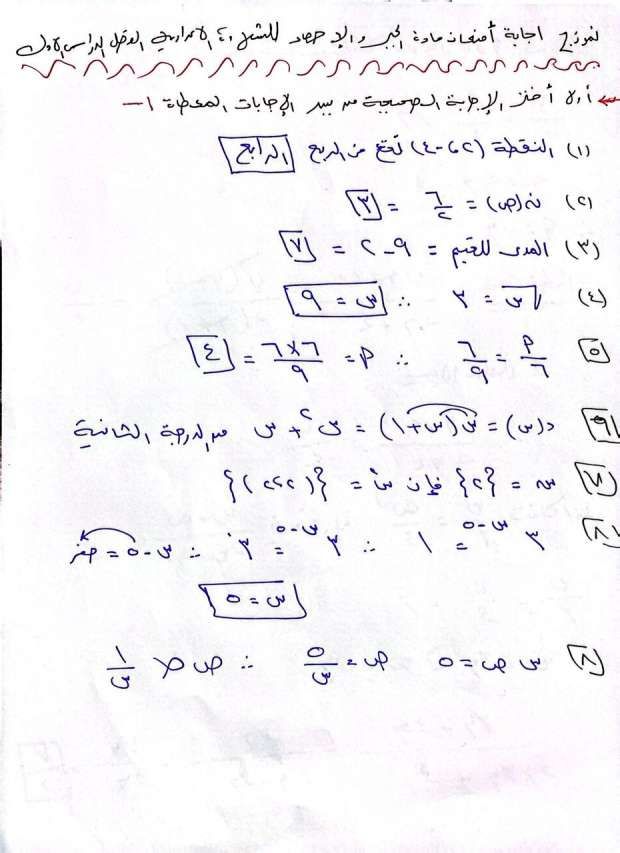 نموذج اجابة أمتحان مادة الجبر والإحصاء للشهادة الاعدادية الفصل الدراسى الاول
أولا أختر الإجابة الصحيحة من بين الإجابات المعطاة :-
(١) النقطة (٢، -٤) تقع من الربع الرابع
(٢) ن(ص) = ٦/٢ = ٣
(٣) المدى للقيم = ٩ - ٢ = ٧
(٤) √س = ٣ ∴ س = ٩
٥ م/٦ = ٦/٩ ∴ م = ٦×٦/٩ = ٤
٦ د(س) = س(س+١) = س² + س من الدرجة الثانية
٧ س = {٢} فإن س² = {(٢،٢)}
٨ ٣^(س-٥) = ١ ∴ ٣^(س-٥) = ٣^٠ ∴ س-٥ = صفر
س = ٥
٨ س ص = ٥ ص = ٥/س ∴ ص ∝ ١/س